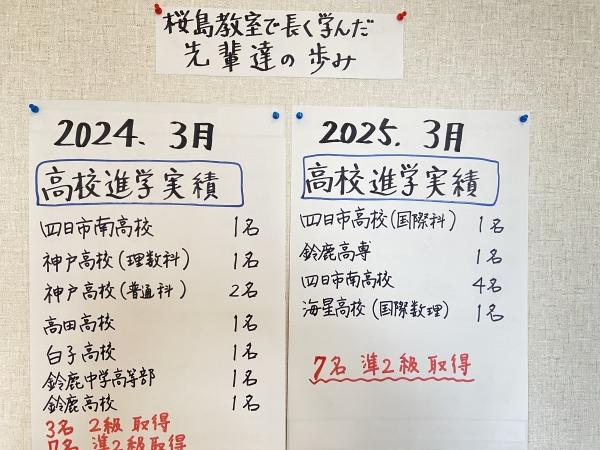 桜島教室で長く学んだ
先輩達の歩み
2024. 3月
高校進学実績
四日市南高校 1名
神戸高校(理数科) 1名
神戸高校(普通科) 2名
高田高校 1名
白子高校 1名
鈴鹿中学高等部 1名
鈴鹿高校 1名
3名 2級 取得
7名 準2級取得
2025. 3月
高校進学実績
四日市高校(国際科) 1名
鈴鹿高専 1名
四日市南高校 4名
海星高校(国際数理) 1名
7名 準2級 取得